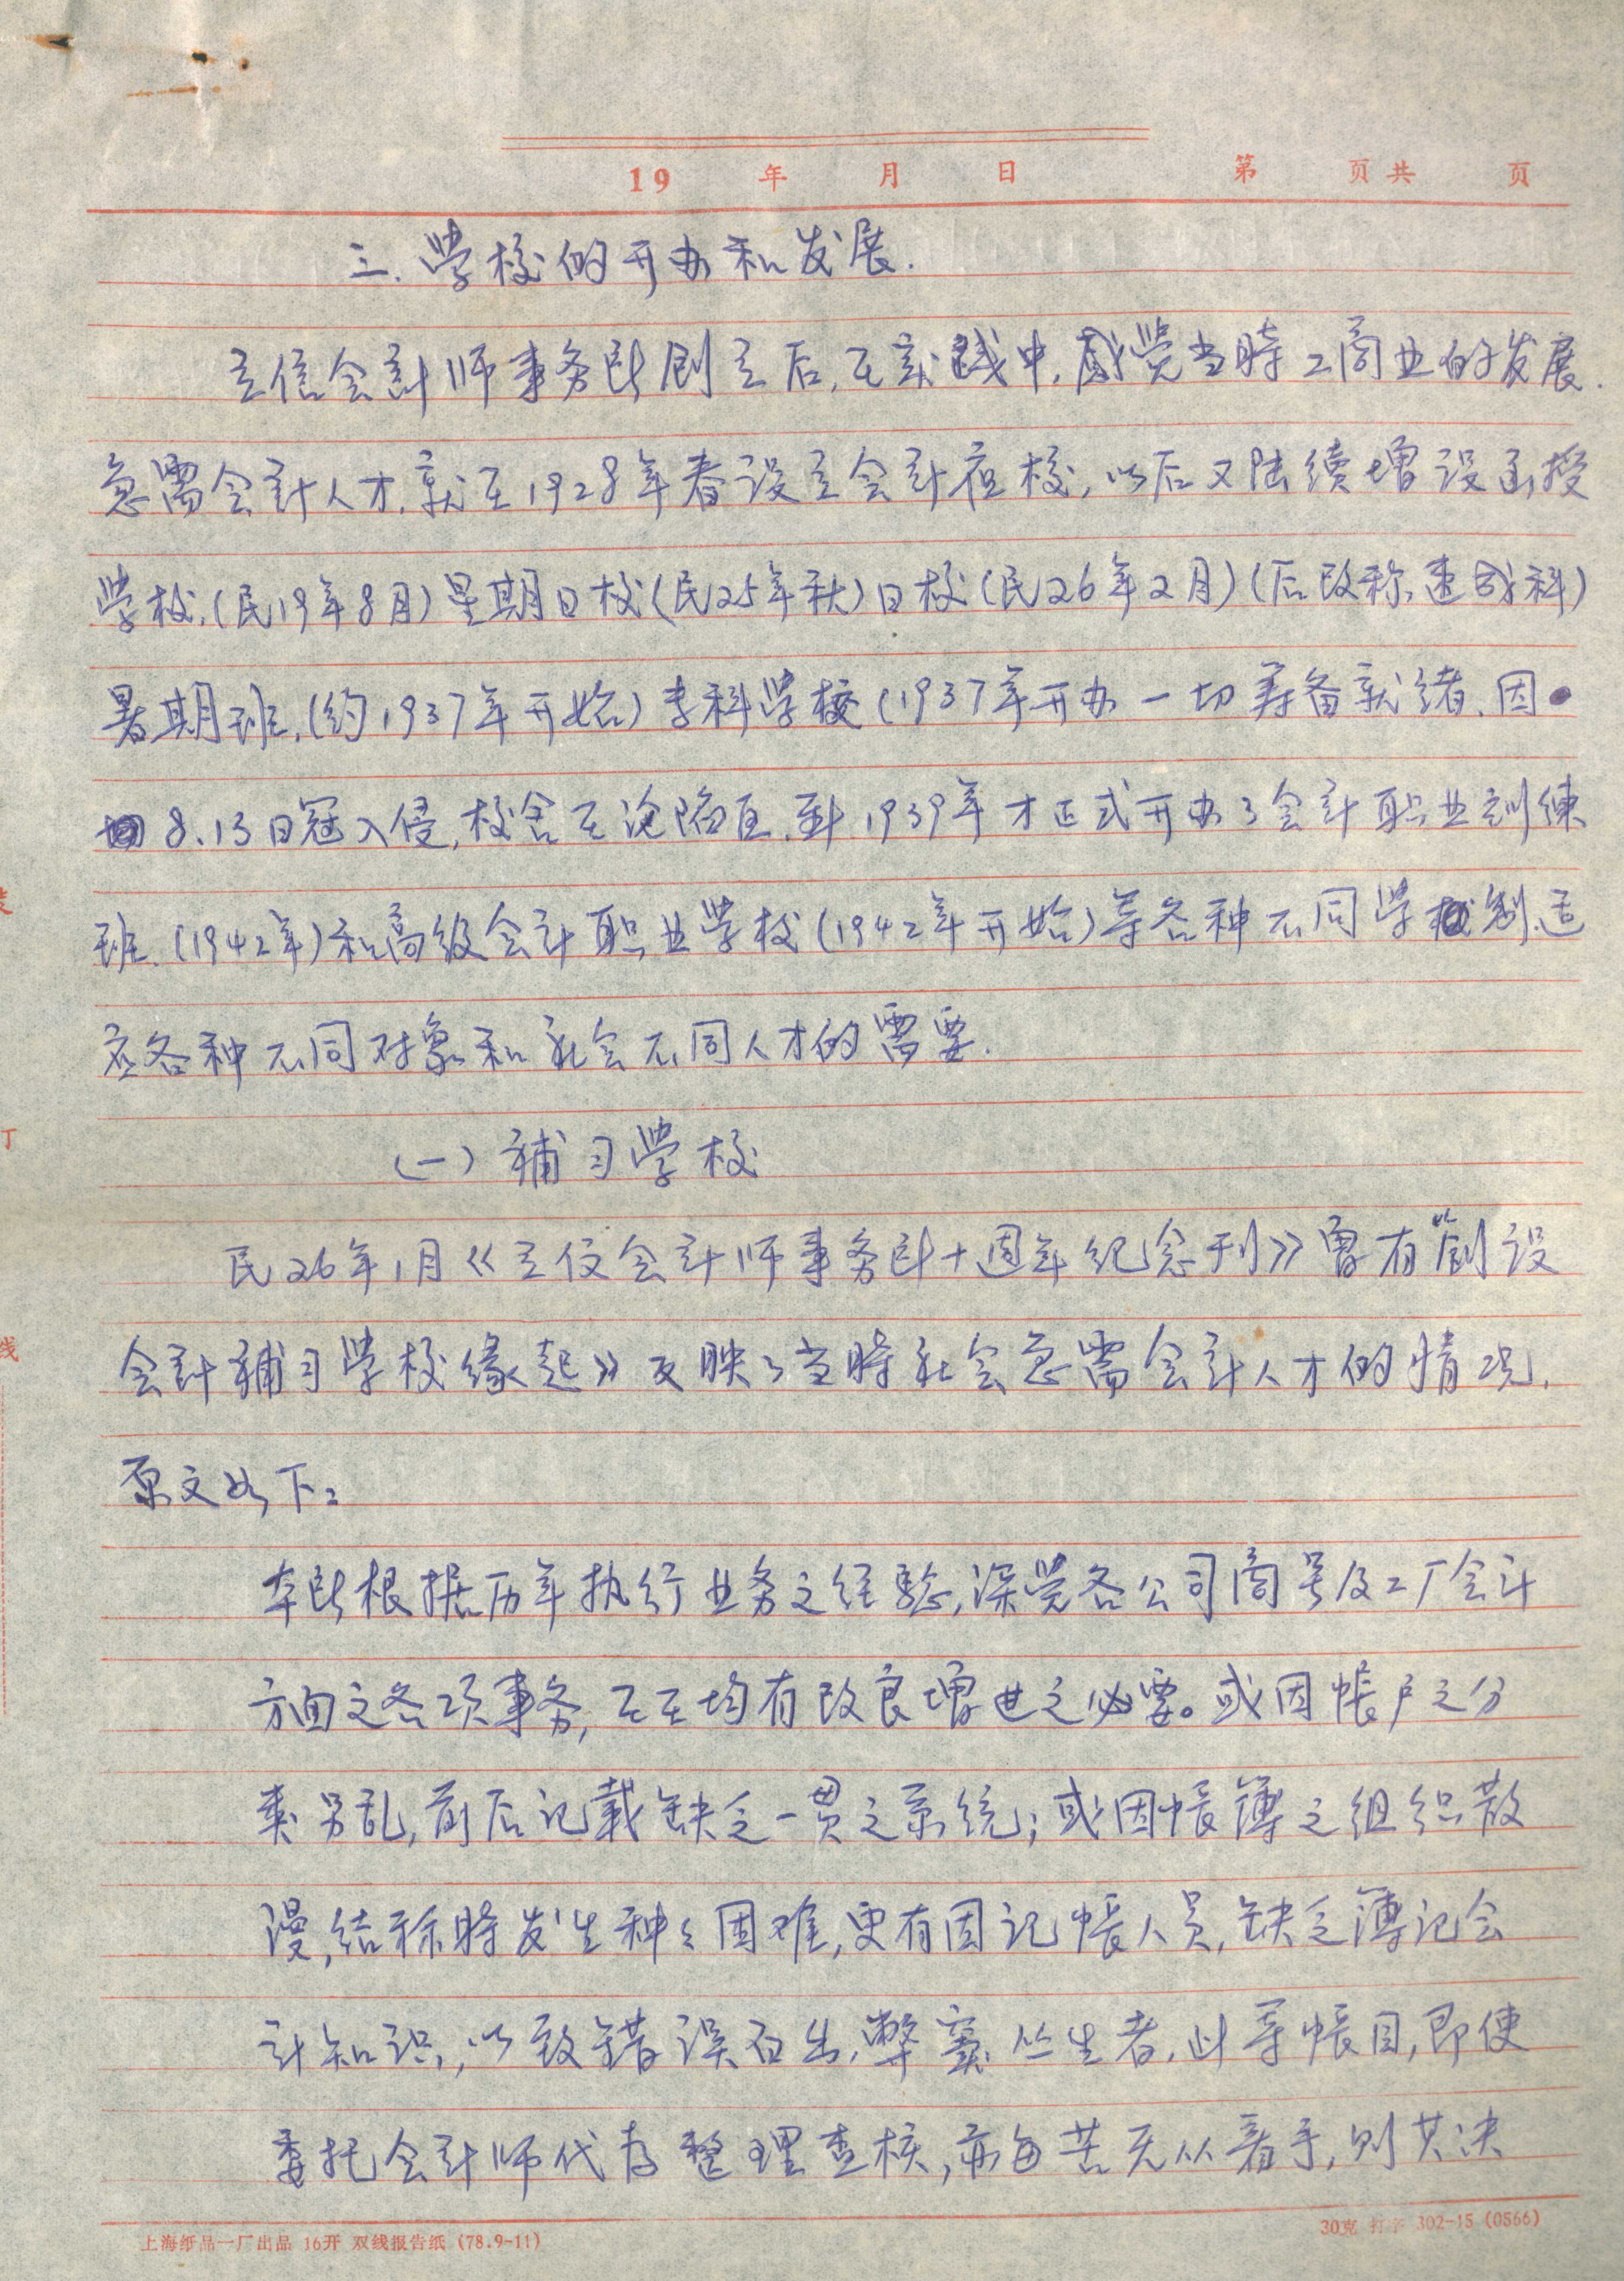 19 年 月 日 第 页共 页
三.学校的开办和发展.
立信会计师事务所创立后,在实践中,感觉当時工商业的发展.
急需会计人才,就在1928年春设立会计夜校,以后又陆续增设函授
学校,(民19年8月)星期日校(民25年秋)日校(民26年2月)(后改称速成科)
暑期班,(约1937年开始)专科学校(1937年开办一切筹备就绪,因
8.13日寇入侵,校舍在沦陷区,到1939年才正式开办了会计职业训练
班.(1942年)和高级会计职业学校(1942年开始)等各种不同学制.适
应各种不同对象和社会不同人才的需要.
(一)補习学校
民26年1月《立信会计师事务所十週年纪念刊》曾有“創设
会计補习学校缘起》反映了当時社会急需会计人才的情况,
原文如下:
本所根据历年执行业务之经驗,深觉各公司商号及工厂会计
方面之各项事务,在在均有改良增进之必要。或因帐户之分
类另乱,前后记载缺乏一贯之系统;或因帐簿之组织散
漫,结称時发生种々困难,更有因记帐人员,缺乏簿记会
计知识,以致错误百出,弊竇丛生者,此等帐目,即使
委托会计师代为整理查核,亦每苦无从着手,则其决
装
订
线
上海纸品一厂出品 16开 双线报告纸 (78.9-11)
30克 打字 302-15 (0566)